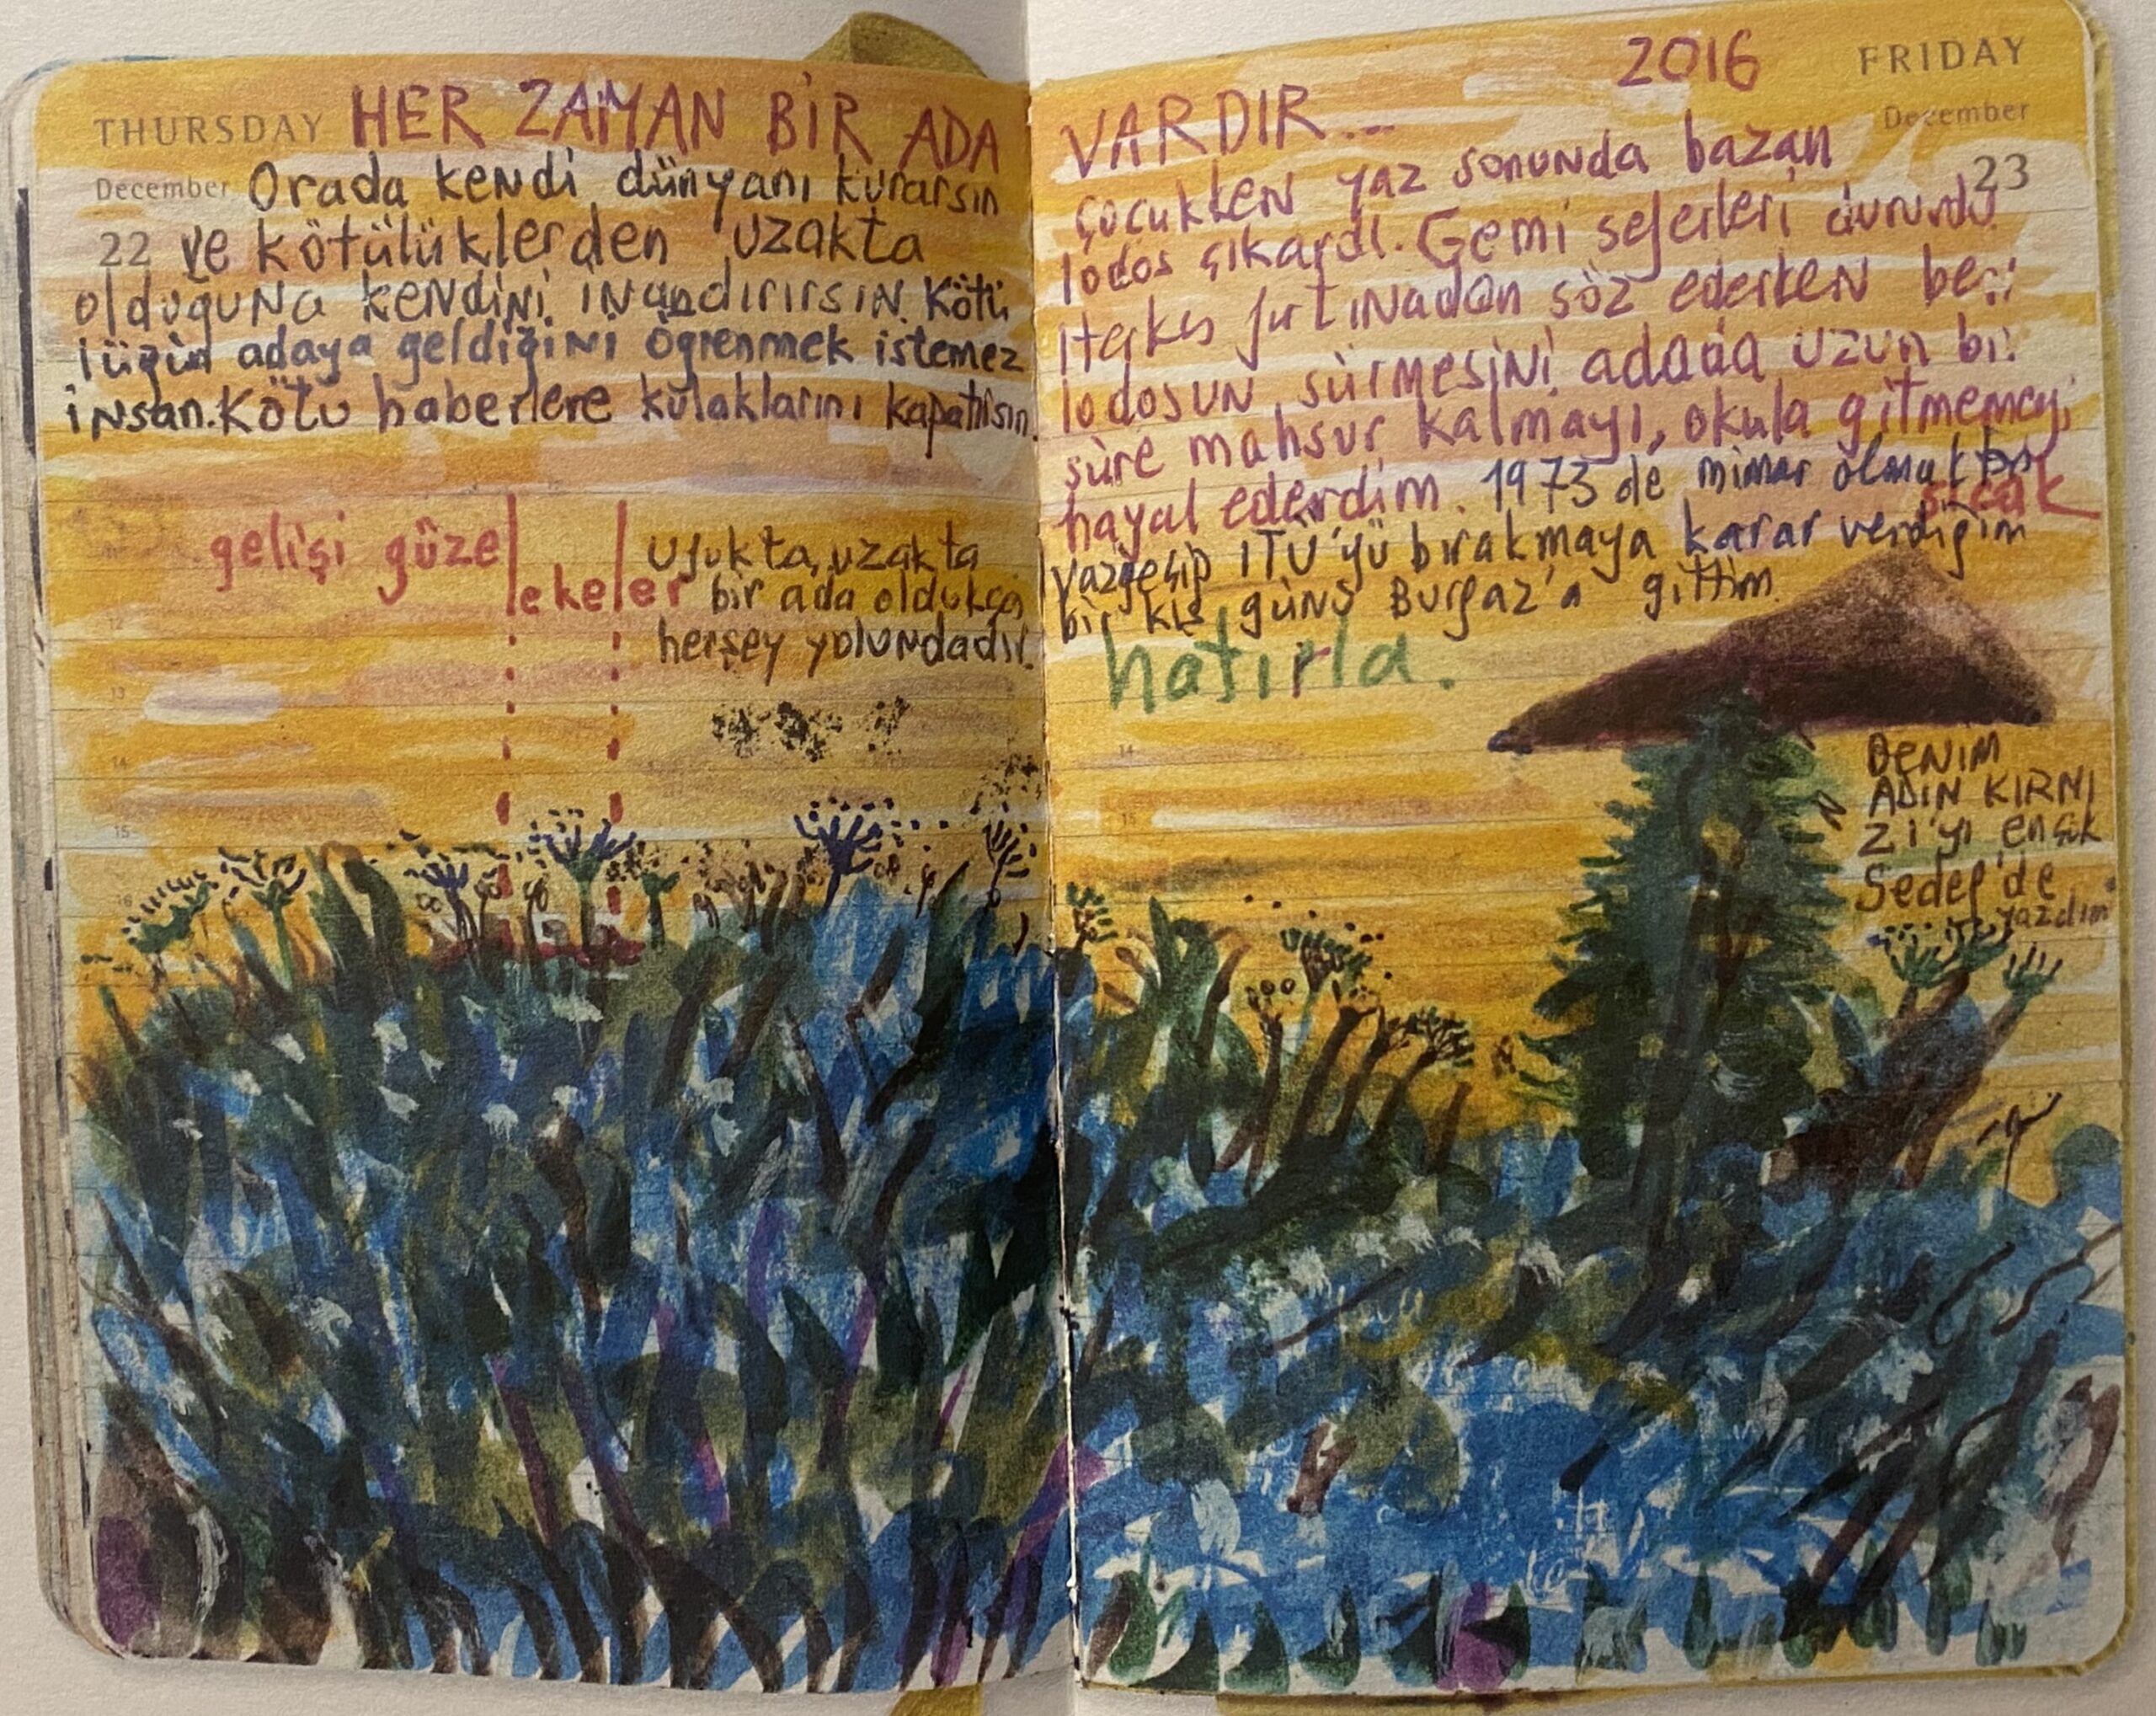 THURSDAY
December
22
HER ZAMAN BİR ADA
Orada kendi dünyanı kurarsın
ve kötülüklerden uzakta
olduğuna kendini inandırırsın. Kötü
lüğün adaya geldiğini öğrenmek istemez
insan. Kötü haberlere kulaklarını kapatırsın.
gelişi güzel
lekeler
Ufukta, uzakta
bir ada oldukça
herşey yolundadır.
2016
FRIDAY
December
23
VARDIR...
Çocukken yaz sonunda bazan
lodos çıkardı. Gemi seferleri dururdu
Herkes fırtınadan söz ederken ben
lodosun sürmesini adada uzun bir
süre mahsur kalmayı, okula gitmemeyi
hayal ederdim. 1973 de mimar olmaktan
sıcak
vazgeçip İTÜ'yü bırakmaya karar verdiğim
bir kış günü Burgaz'a gittim.
hatırla.
BENİM
ADIM KIRMI
Zİ'yi en çok
Sedef'de
yazdım
12
13
14
15
16
14
15